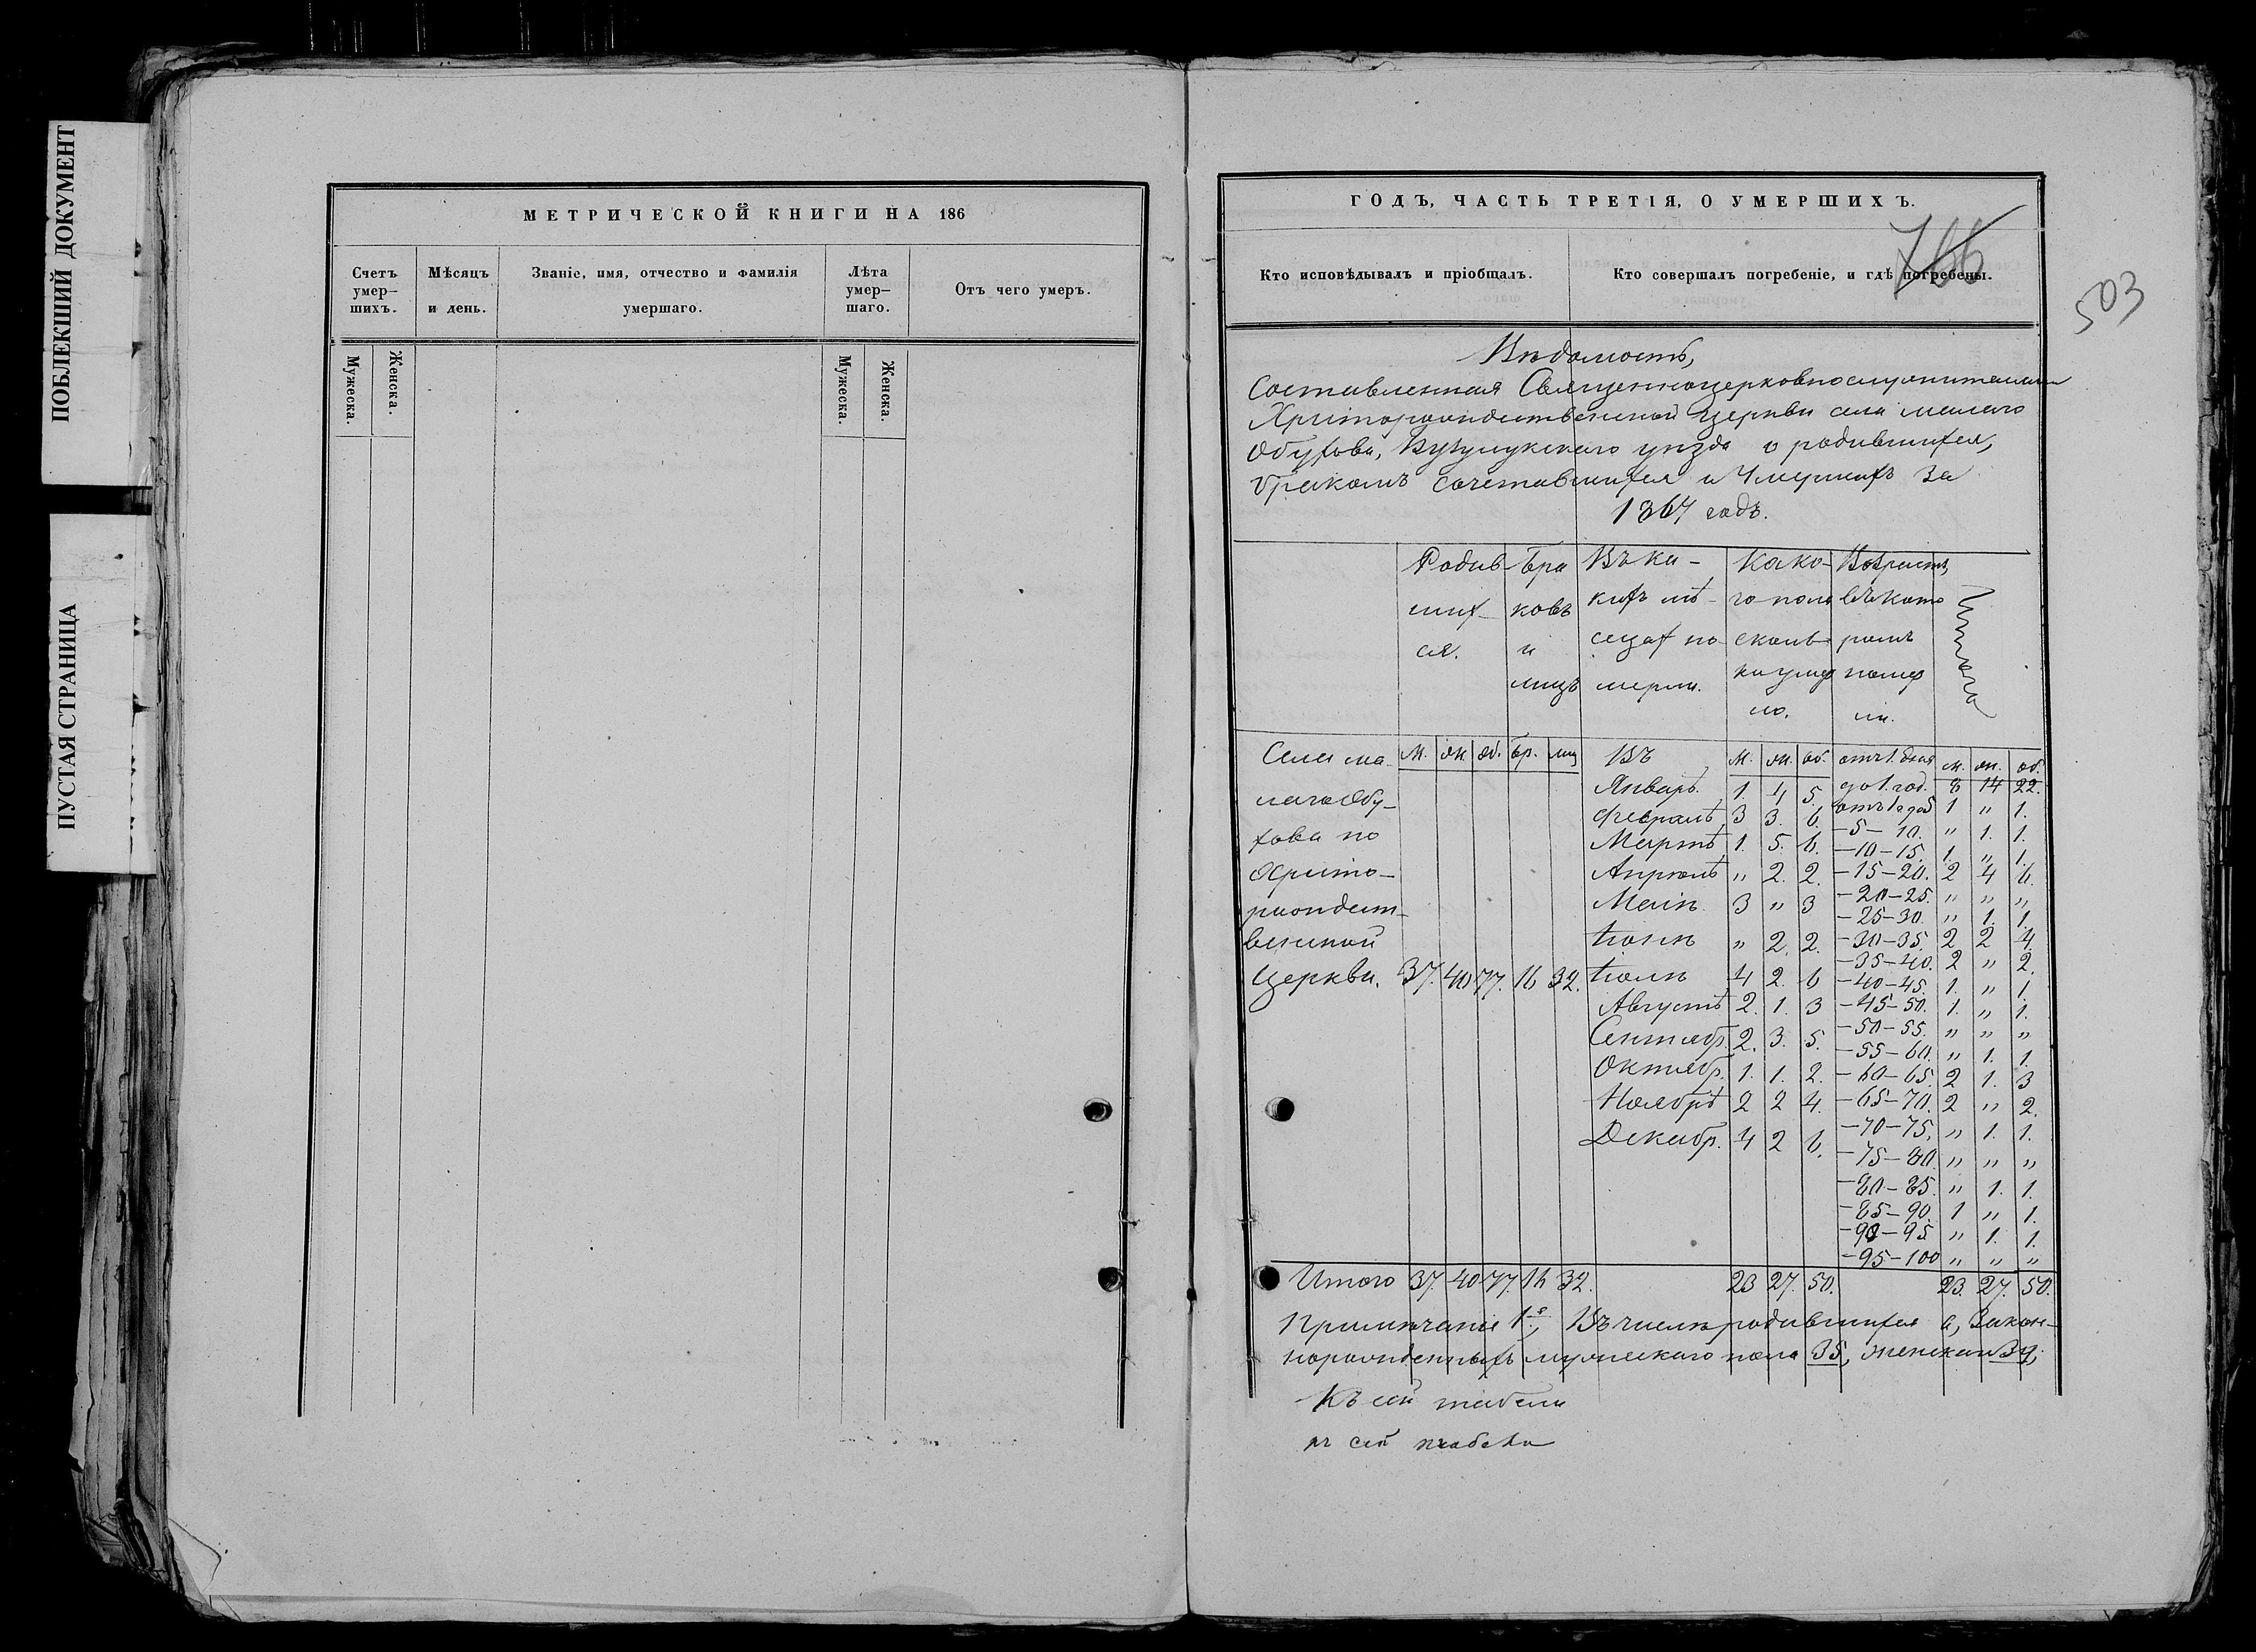 ПОБЛЕКШИЙ ДОКУМЕНТ
ПУСТАЯ СТРАНИЦА
МЕТРИЧЕСКОЙ КНИГИ НА 186
Счетъ умер— шихъ. Мѣсяцъ и день. Званіе, имя, отчество и фамилія умершаго. Лѣта умер— шаго. Отъ чего умеръ.
Мужеска. Женска. Мужеска. Женска.
ГОДЪ, ЧАСТЬ ТРЕТІЯ, О УМЕРШИХЪ.
766
503
Кто исповѣдывалъ и пріобщалъ. Кто совершалъ погребеніе, и гдѣ погребены.
Вѣдомость,
Составленная Священноцерковнослужителями
Христорождественской церкви села малаго
Обухова, Бузулукскаго уѣзда о родившихся,
бракомъ сочетавшихся и Умершихъ за
1867 годъ.
Родив- Бра Въ ка- Како- Возрастъ,
ших- ковъ кихъ мѣ- го пола въ кото
ся. и сяцах по сколь ромъ
лицъ мерли. ко умер помер
ло. ли.
Итого
Села ма- М. ж. об. бр. лиц Въ М. ж. об. отъ 1. дня м. ж. об.
лаго Обу- Январѣ. 1. 4 5. до 1. год. 8 14 22.
хова по Февралѣ 3 3. 6. отъ 1 до 5 1 " 1.
Христо- Мартѣ 1. 5. 6. —5—10. " 1. 1.
рождест- —10—15. 1. " 1.
Апрѣлѣ " 2. 2. —15—20. 2 4 6.
Маѣ 3 " 3 —20—25. " " "
венской —25—30. " 1. 1.
Іюнѣ " 2. 2. —30—35. 2 2 4.
—35—40. 2 " 2.
Церкви. 37. 40 77. 16 32. Іюлѣ 4 2. 6 —40—45. 1. " 1.
Августѣ 2. 1. 3 —45—50. 1. " 1.
—50—55. " " "
Сентябр. 2. 3. 5. —55—60. " 1. 1.
Октябр. 1. 1. 2. —60—65. 2 1. 3
Ноябрѣ 2 2 4. —65—70. 2 " 2.
—70—75. " 1. 1.
Декабр. 4 2 6. —75—80. " " "
—80—85. " 1. 1.
—85—90. 1 " 1.
—90—95 " 1. 1.
—95—100 " " "
Итого 37. 40 77. 16 32. 23 27. 50. 23. 27. 50.
Примѣчаніе 1е, Въ числѣ родившихся а, Закон-
норожденныхъ мужескаго пола 35, женскаго 39,
Къ сей табели
къ сей табели